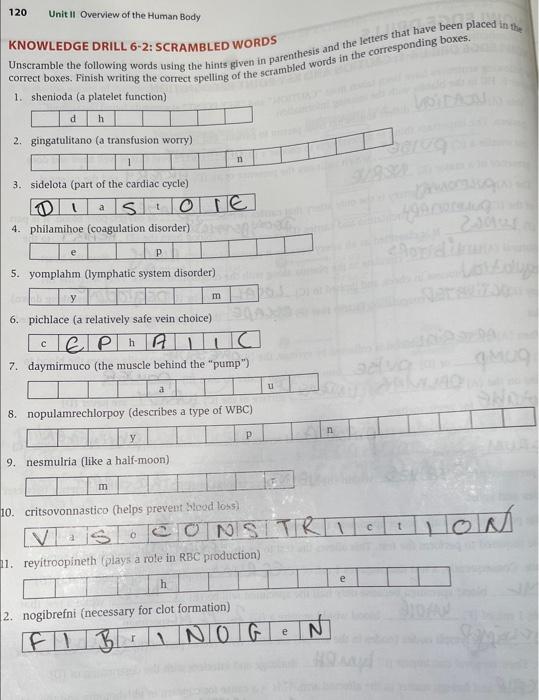 120 Unit II Overview of the Human Body
KNOWLEDGE DRILL 6-2: SCRAMBLED WORDS
Unscramble the following words using the hints given in parenthesis and the letters that have been placed in the
correct boxes. Finish writing the correct spelling of the scrambled words in the corresponding boxes.
1. shenioda (a platelet function)
d h
2. gingatulitano (a transfusion worry)
l n
3. sidelota (part of the cardiac cycle)
D I a S t O l E
4. philamihoe (coagulation disorder)
e p
5. yomplahm (lymphatic system disorder)
y m
6. pichlace (a relatively safe vein choice)
c E P h A l I C
7. daymirmuco (the muscle behind the "pump")
a u
8. nopulamrechlorpoy (describes a type of WBC)
y p n
9. nesmulria (like a half-moon)
m r
10. critsovonnastico (helps prevent blood loss)
V a S o C O N S T R I c t I O N
11. reyitroopineth (plays a role in RBC production)
h e
2. nogibrefni (necessary for clot formation)
F I B r I N O G e N